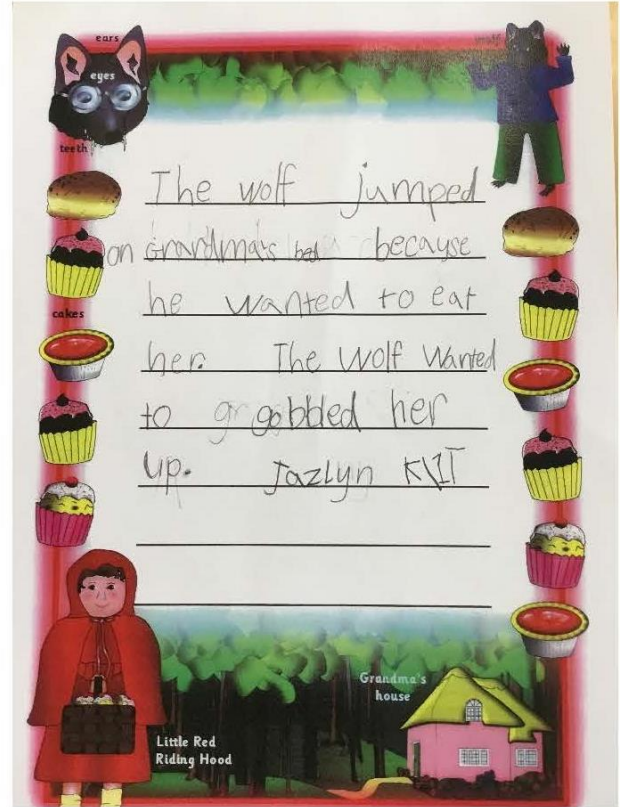 ears
eyes
teeth
wolf
The wolf jumped
on Grandma's bed because
he wanted to eat
her. The Wolf Wanted
to gobbled her
up. Jazlyn K\1T
cakes
Grandma's
house
Little Red
Riding Hood